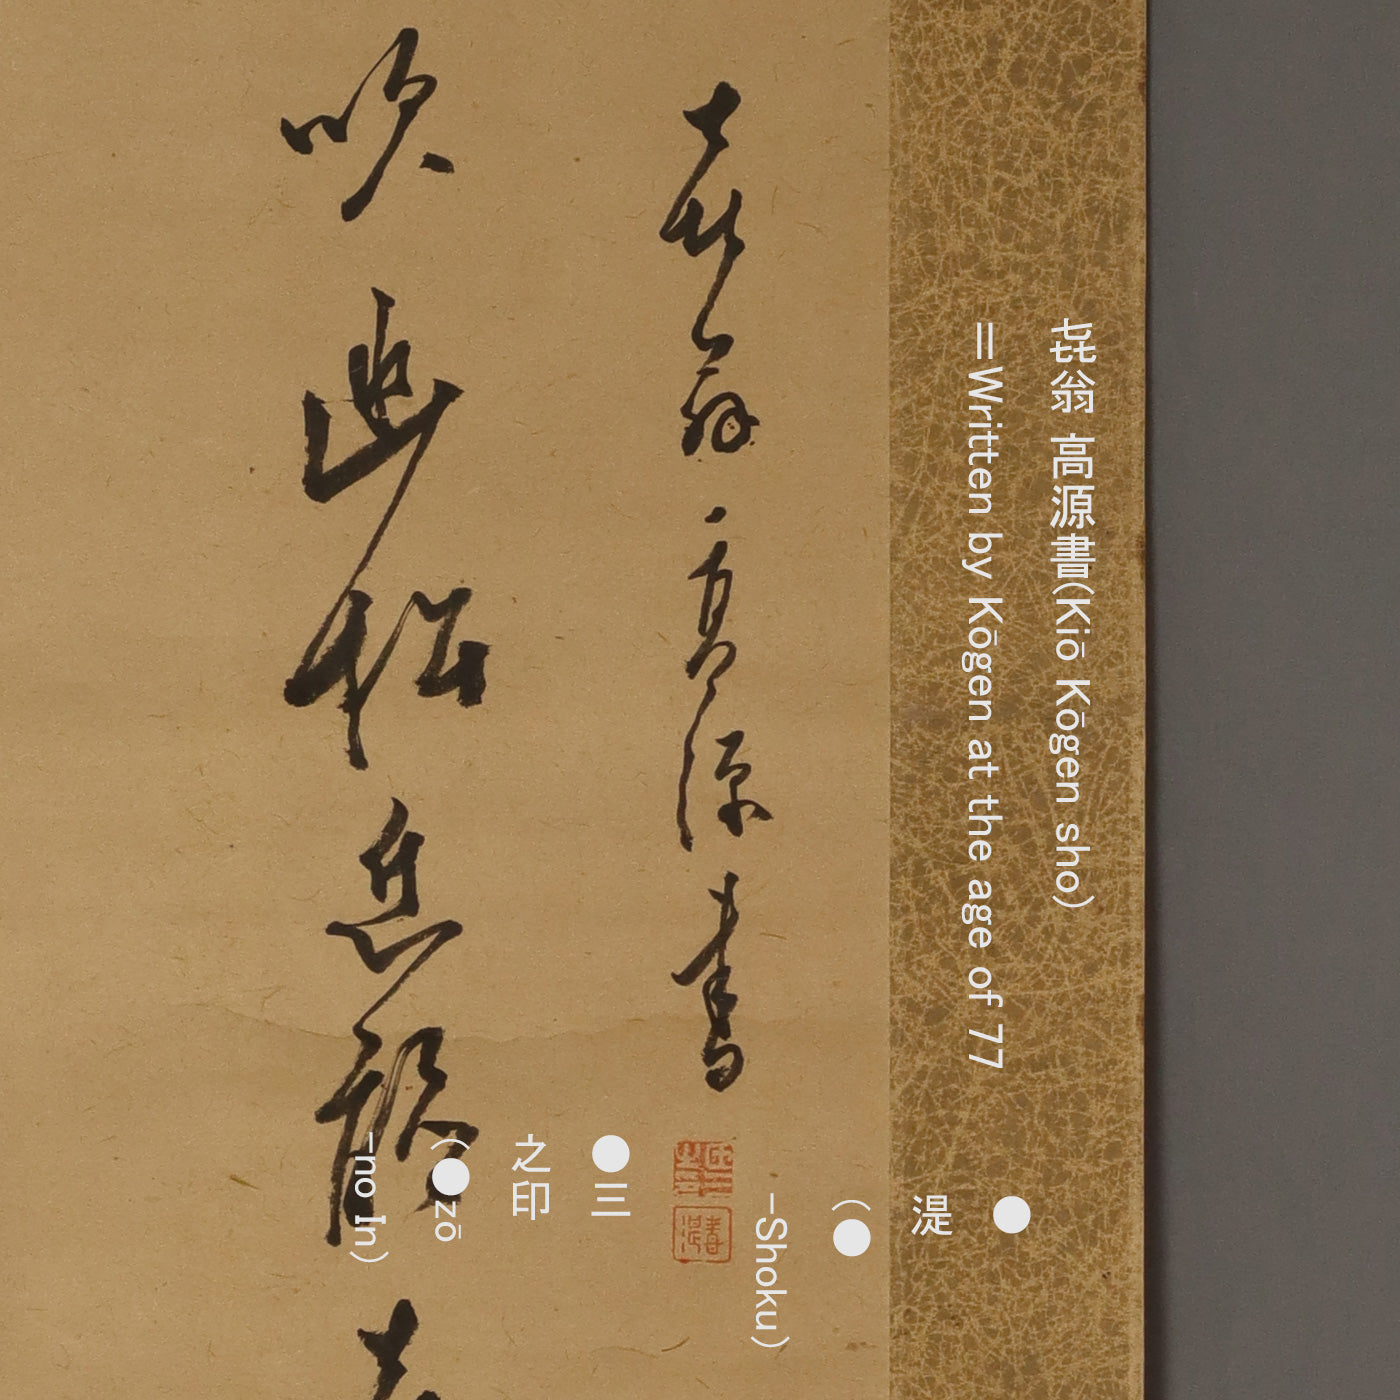 㐂翁 高源書(Kiō Kōgen sho)
=Written by Kōgen at the age of 77
㐂翁高源書
吹幽松近聽
●
湜
(●
–Shoku)
●三
之印
(●zō
–no In)